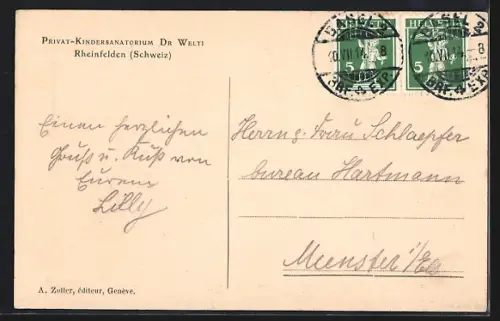 Privat-Kindersanatorium Dr Welti
Rheinfelden (Schweiz)
BASEL 2
HELVETIA
BASEL 2
10.VII.14. 8
5
5
10.VII.14. 8
BRF. EXP.
BRF. EXP.
Einen herzlichen
Gruß u. Kuß von
Eurem
Lilly
Herrn u. Frau Schlaepfer
bureau Hartmann
Munster i/Els
A. Zoller, éditeur, Genève.